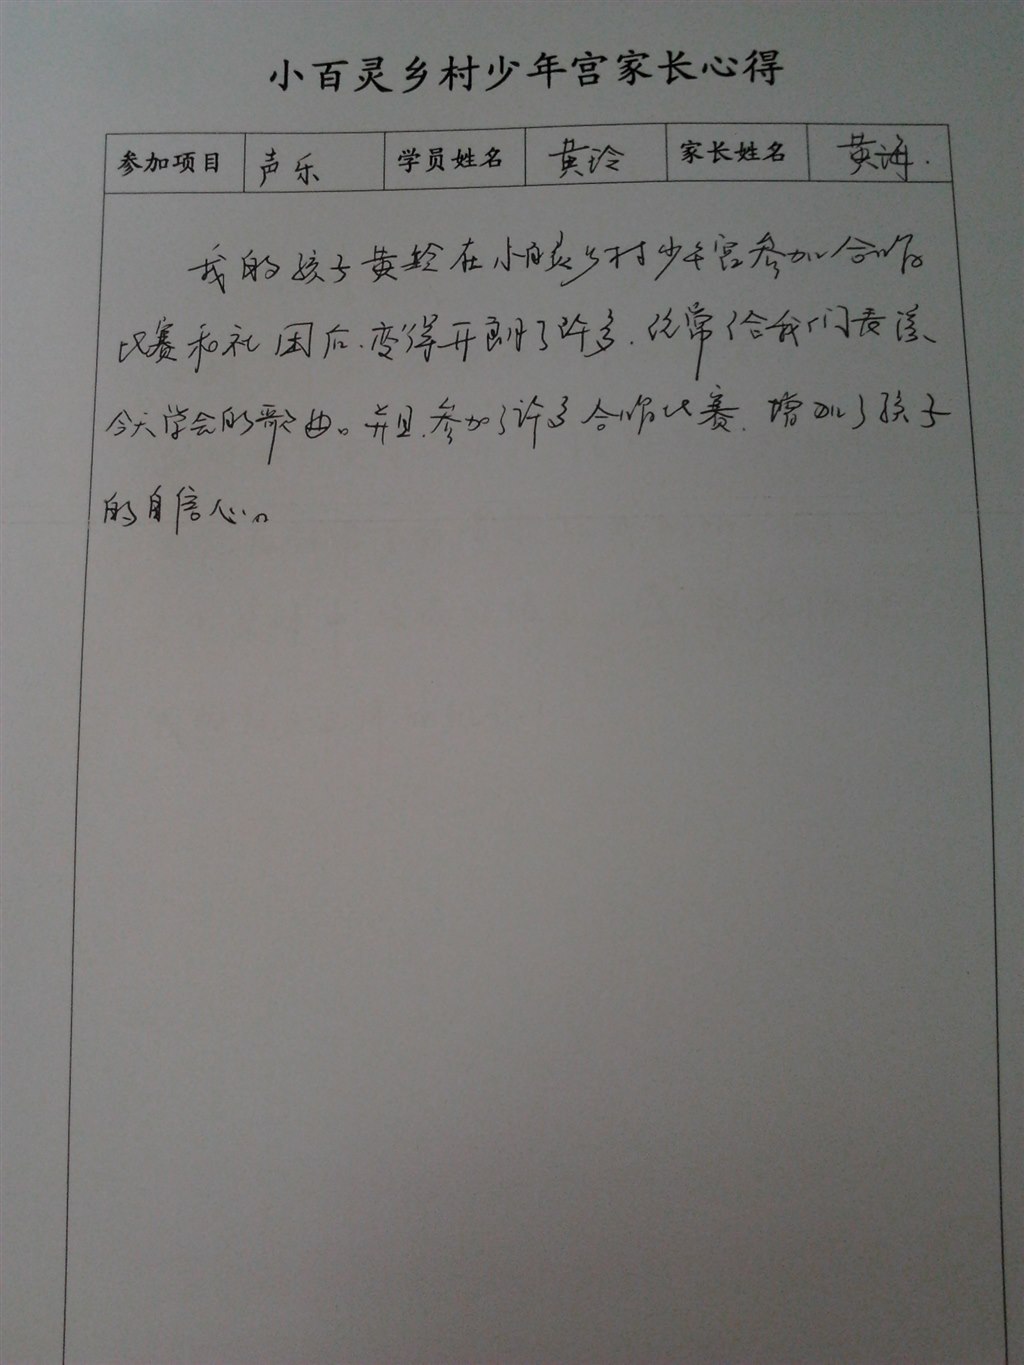 小百灵乡村少年宫家长心得
参加项目 声乐 学员姓名 黄玲 家长姓名 黄海
我的孩子黄玲在小百灵乡村少年宫参加合唱
比赛和社团后,变得开朗了许多,经常给我们表演
今天学会的歌曲。并且,参加了许多合唱比赛,增加了孩子
的自信心。